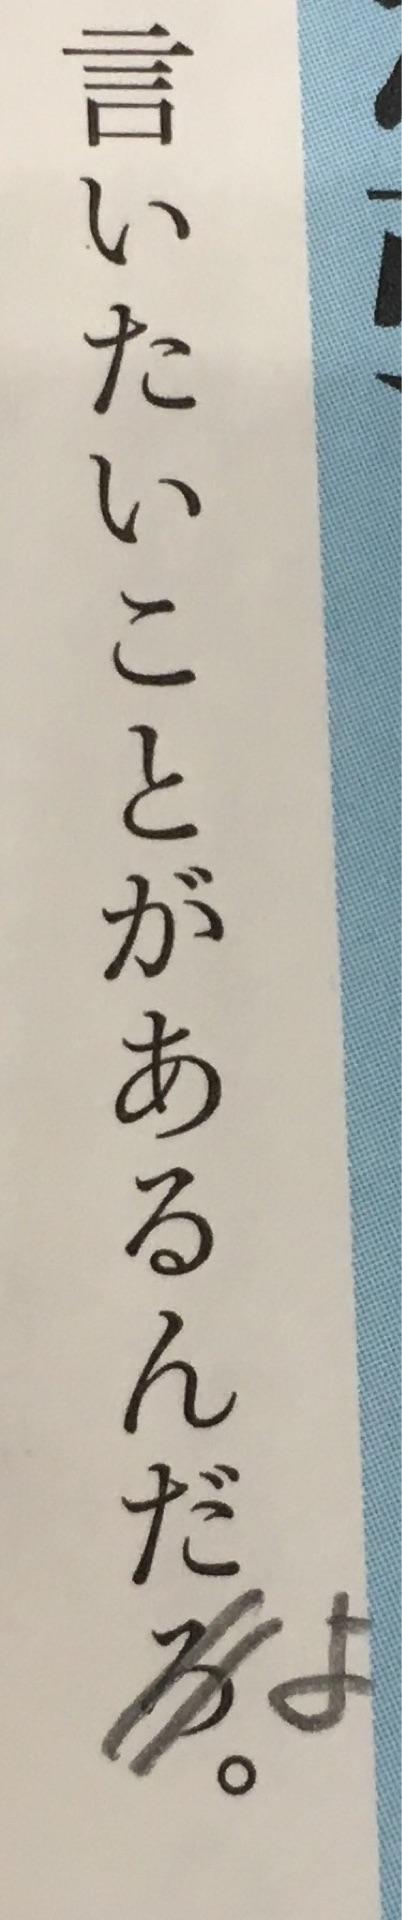 言いたいことがあるんだろ。
よ